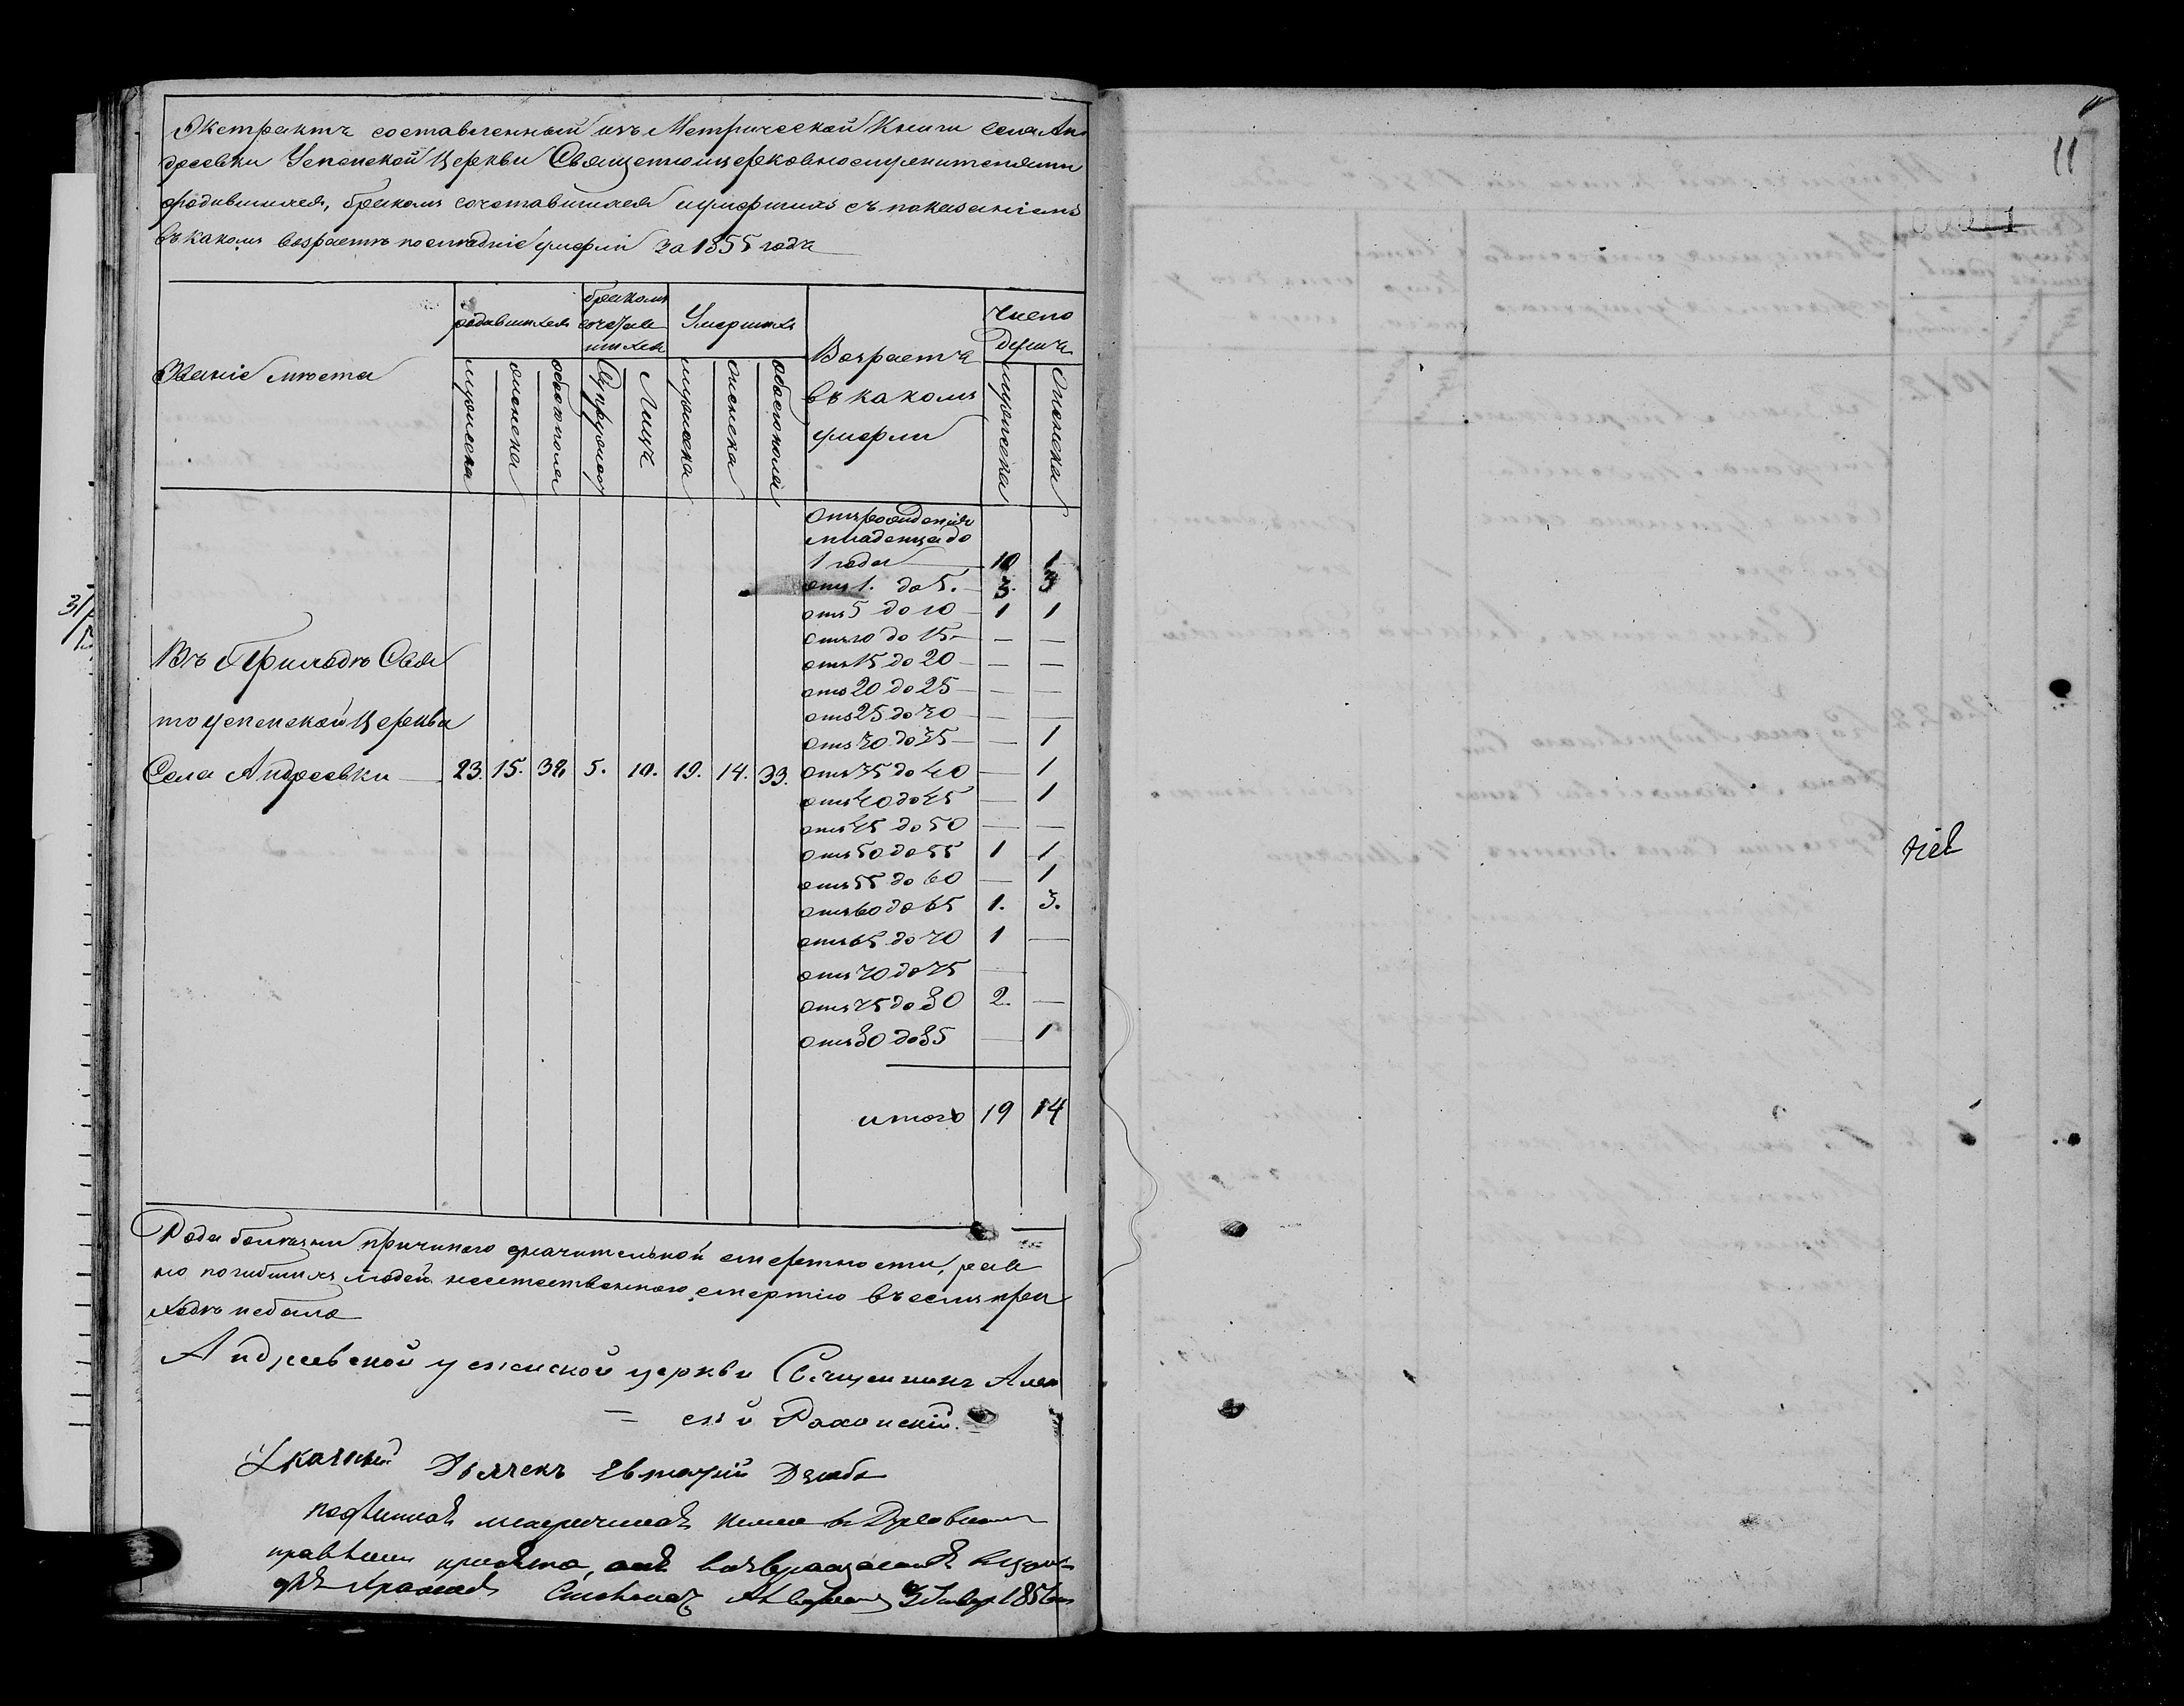 Экстрактъ составленный изъ Метрической Книги села Ан
дреевки Успенской Церкви Священноцерковнослужителями
о родившихся, бракомъ сочетавшихся и умершихъ съ показаніемъ
въ какомъ возрастѣ послѣдніе умерли за 1855 годъ
Званіе мѣста
родившихся
бракомъ
сочетав
шихся
Умершихъ
Возрастъ
въ какомъ
умерли
Число
душъ
мужеска
женска
обоего пола
Супружествъ
Лицъ
мужеска
женска
обоего пола
мужеска
женска
Отъ рожденія
младенца до
1 года 10 1
отъ 1. до 5. 3. 3
отъ 5 до 10 1 1
отъ 10 до 15 — —
отъ 15 до 20 — —
отъ 20 до 25 — —
отъ 25 до 30 — —
отъ 30 до 35 — 1
отъ 35 до 40 — 1
отъ 40 до 45 — 1
отъ 45 до 50 — —
отъ 50 до 55 1 1
отъ 55 до 60 — 1
отъ 60 до 65 1. 3.
отъ 65 до 70 1 —
отъ 70 до 75 —
отъ 75 до 80 2. —
отъ 80 до 85 — 1
итого 19 14
Въ Приходѣ Свя
то Успенской Церкви
Села Андреевки 23. 15. 38. 5. 10. 19. 14. 33.
Рода болѣзни причиною значительной смертности, рав
но погибшихъ людей неестественною смертію въ семъ при
ходѣ небыло
Андреевской успенской церкви Священникъ Алек
сѣй
Указный Дьячекъ Евтафій Дзюба
метрическая
11
00011